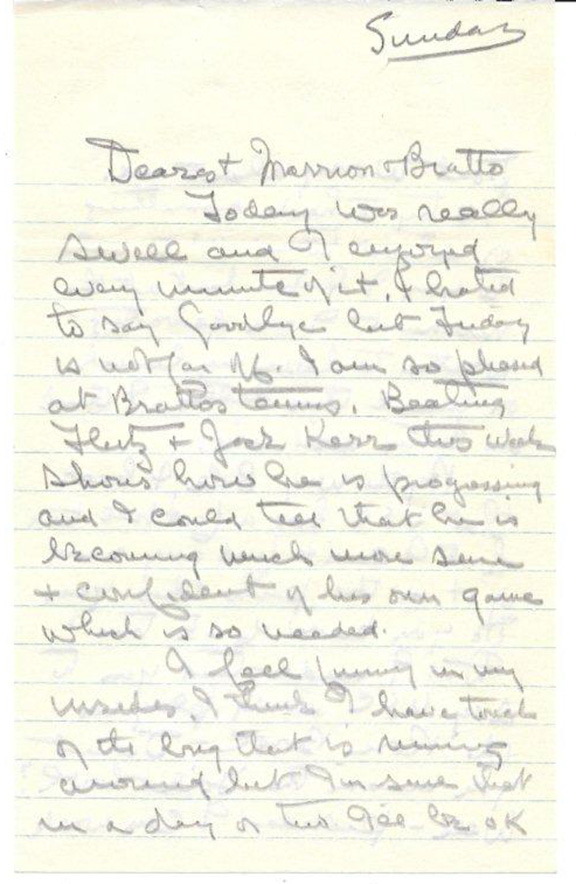 Sunday
Dearest Marrion + Bratto
Today was really
swell and I enjoyed
every minute of it, I hated
to say Goodbye but Friday
is not far off. I am so pleased
at Brattos tennis. Beating
+ Jack Kerr this week
shows how he is progressing
and I could tell that he is
becoming much more sure
+ confident of his own game
which is so needed.
I feel funny in my
insides, I think I have touch
of the bug that is running
around but I'm sure that
in a day or two I'll be OK